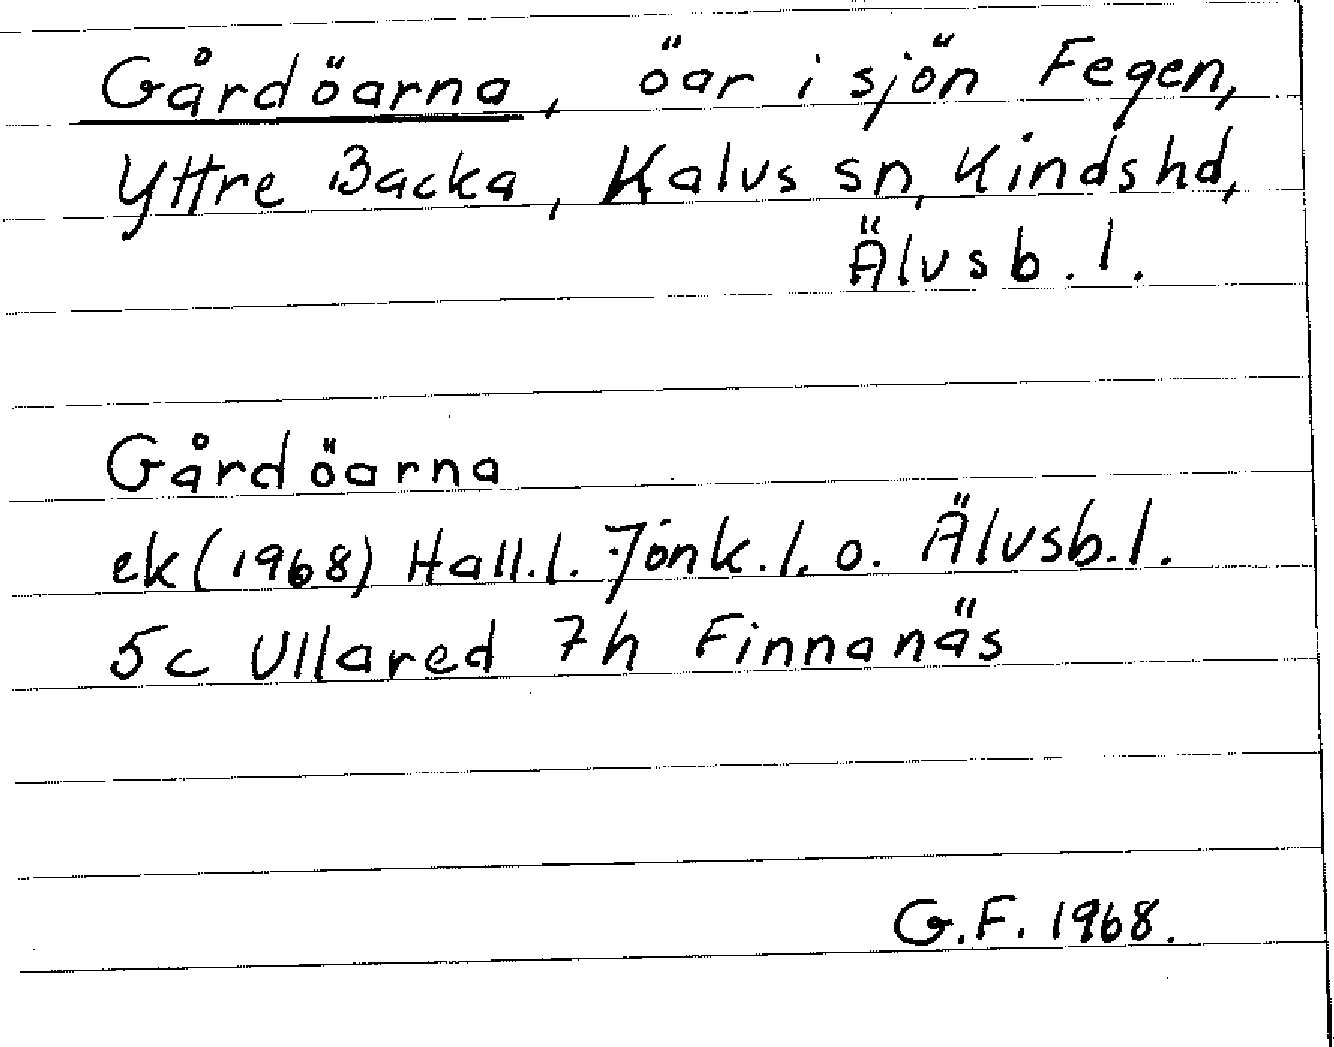 Gårdöarna, öar i sjön Fegen,
Yttre Backa, Kalvs sn, Kinds hd,
Älvsb. l.
Gårdöarna
ek (1968) Hall.l. Jönk.l. o. Älvsb.l.
5c Ullared 7h Finnanäs
G.F. 1968.